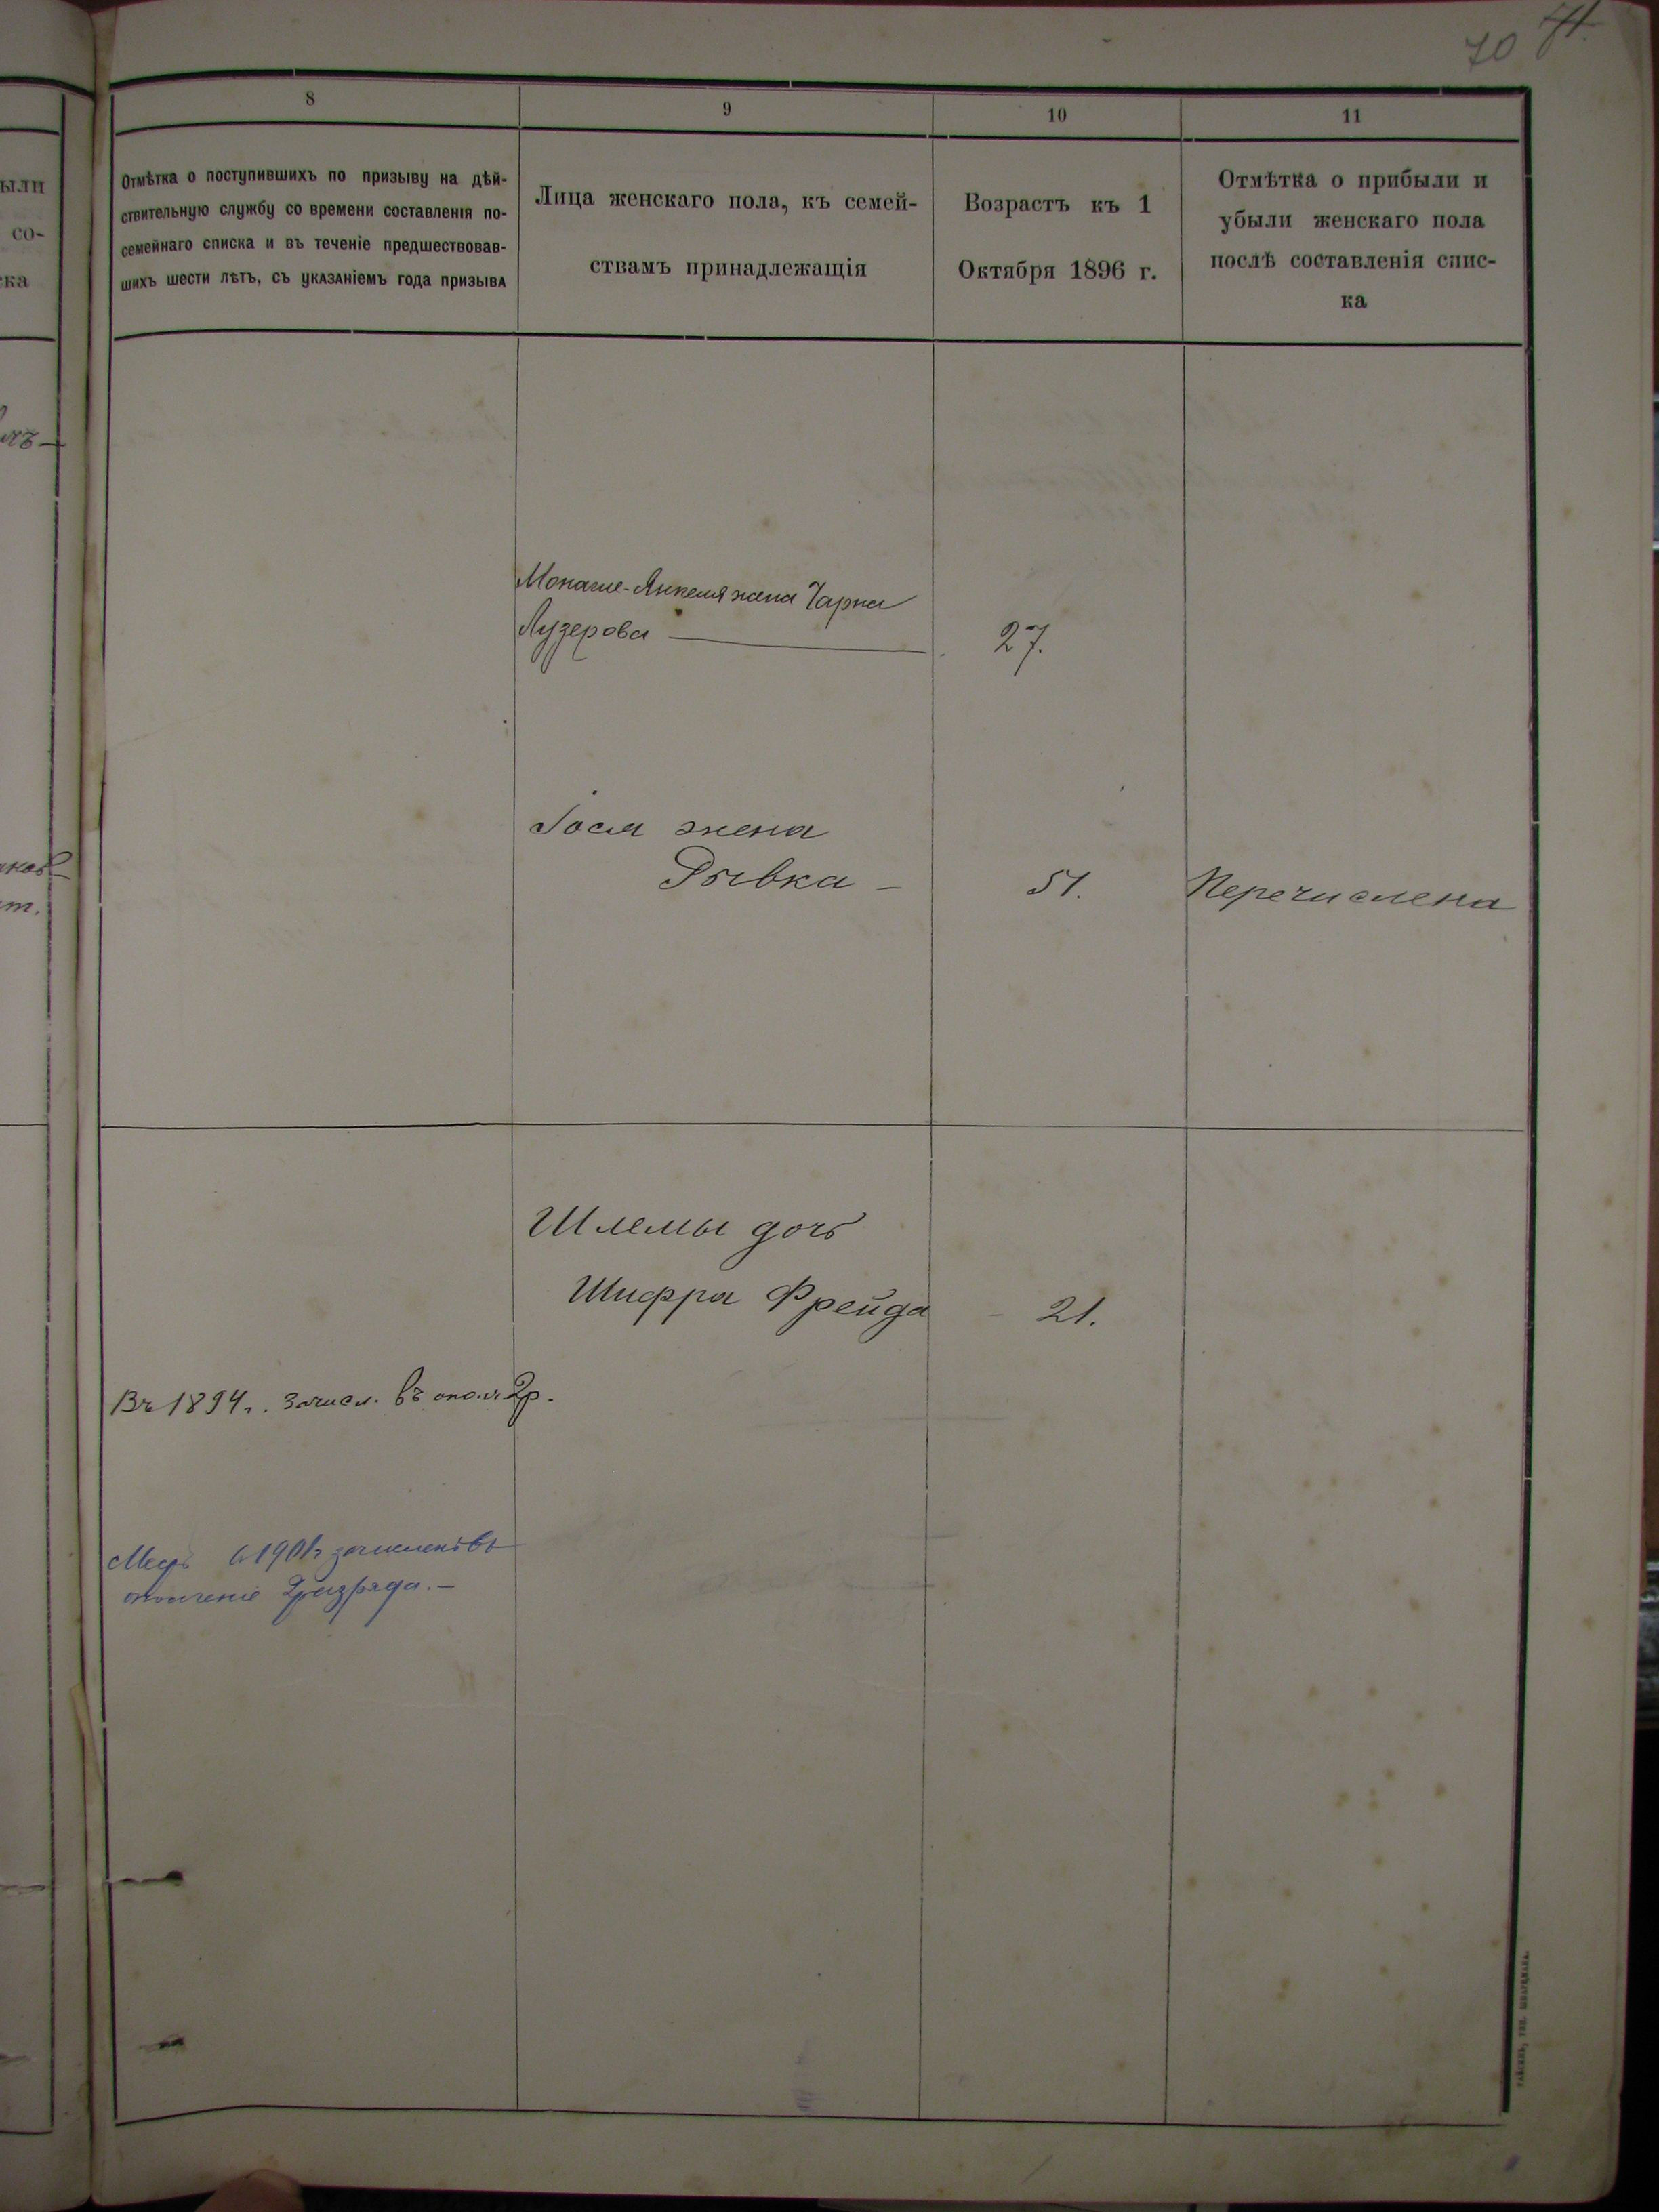 70 71
8
9
10
11
Отмѣтка о поступившихъ по призыву на дѣй-
ствительную службу со времени составленія по-
семейнаго списка и въ теченіе предшествовав-
шихъ шести лѣтъ, съ указаніемъ года призыва
Лица женскаго пола, къ семей-
ствамъ принадлежащія
Возрастъ къ 1
Октября 1896 г.
Отмѣтка о прибыли и
убыли женскаго пола
послѣ составленія спис-
ка
ыли
со-
ка
Янкеля жена Чарна
Лузерова
27.
Іося жена
Рывка —
51.
Перечислена
т.
Шлемы дочь
Шифра Фрейда
21.
Въ 1894 г. зачисл. въ опол. 2 р.
1901 г зачисленъ въ
ополченіе 2 разряда. —
ГАЙСИНЪ, ТИП. ШВАРЦМАНА.